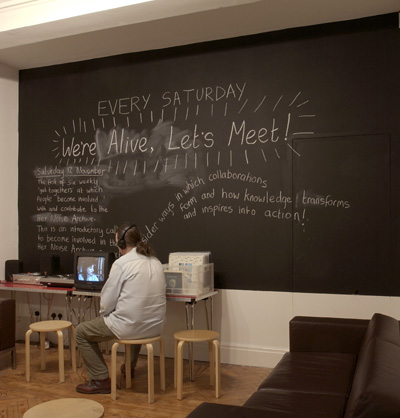 EVERY SATURDAY
We're Alive, Let's Meet!
Saturday 12 November
The first of six weekly
'get togethers' at which
People become involved
with and contribute to the
Her Noise Archive.
This is an introductory
to become involved in the
Her Noise Archive
ways in which collaborations
form and how knowledge transforms
and inspires into action!